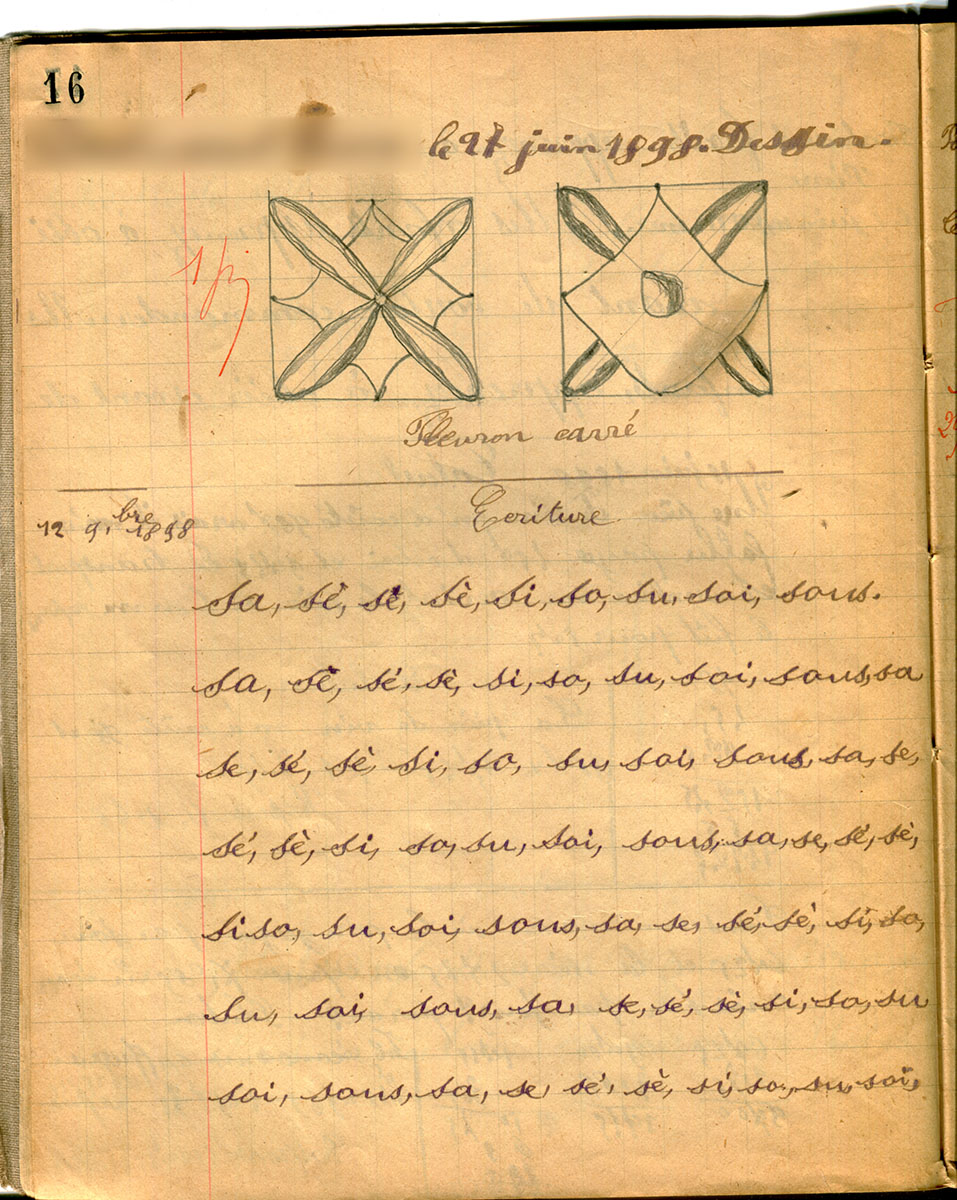 16
le 27 juin 1898. Dessin.
Fleuron carré
Ecriture
12 9.bre 1898
sa, sé, sé, sè, si, so, su, soi, sous.
sa, sè, sé, sè, si, so, su, soi, sous, sa
se, sé, sè, si, so, su, soi, sous, sa, se,
sé, sè, si, so, su, soi, sous, sa, se, sé, sè,
si so, su, soi, sous, sa, se, sé, sè, si, so,
su, soi, sous, sa, se, sé, sè, si, so, su
soi, sous, sa, se, sé, sè, si, so, su, soi,